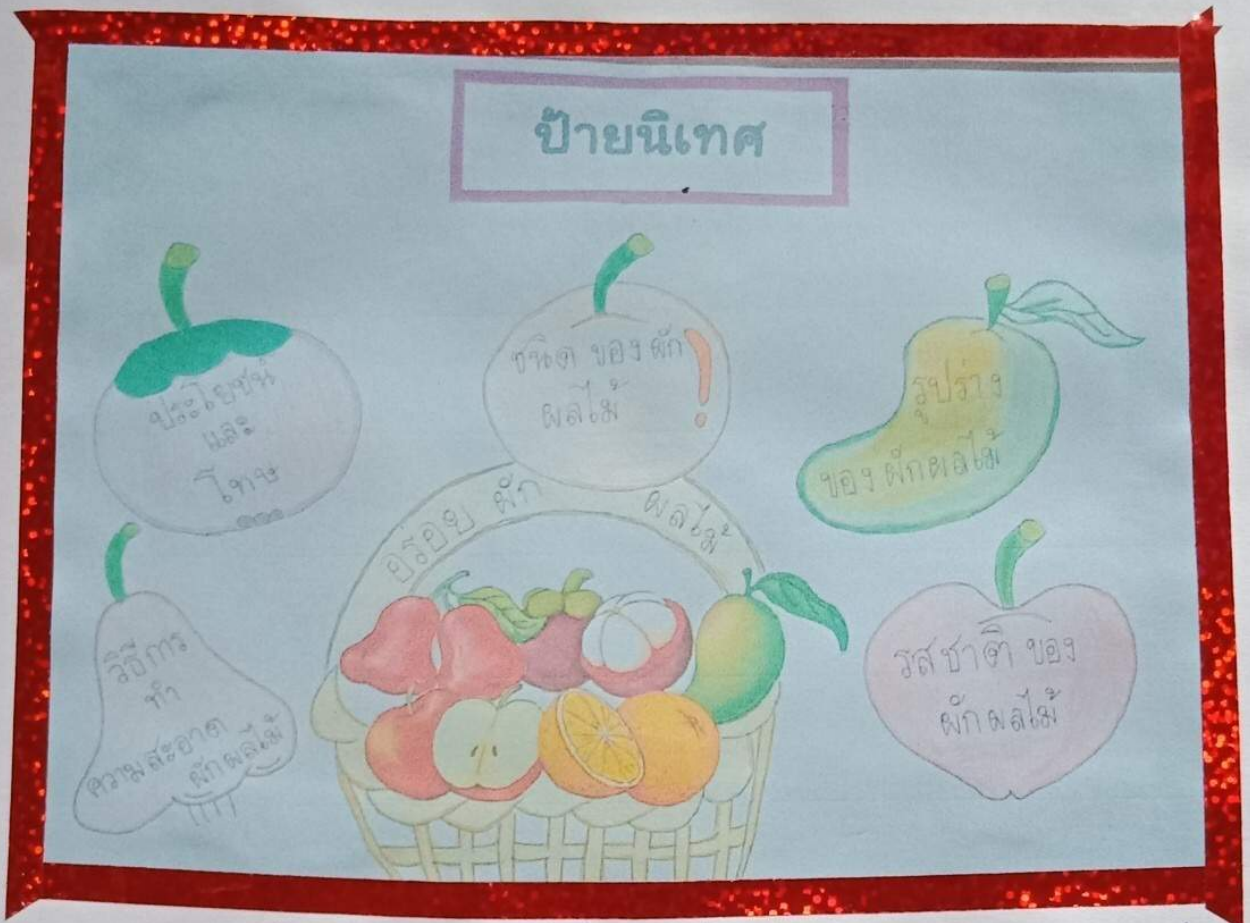 ป้ายนิเทศ
ประโยชน์
และ
โทษ
ชนิด ของ ผัก
ผลไม้ !
รูปร่าง
ของ ผักผลไม้
อร่อย ผัก ผลไม้
วิธีการ
ทำ
ความสะอาด
ผักผลไม้
รสชาติ ของ
ผักผลไม้